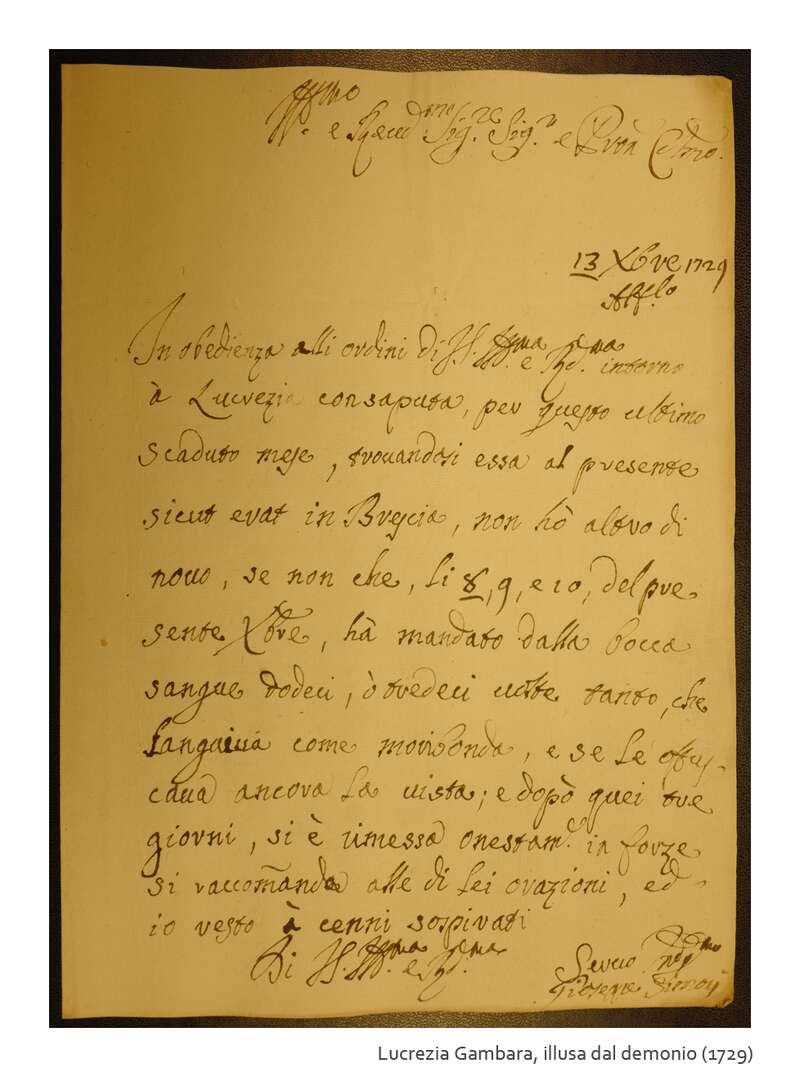 Ill.mo e Rever.mo Sig.re Sig.r e Pron Col.mo
13 Xbre 1729
In obedienza alli ordini di V.S. Ill.ma e R.ma intorno
à Lucrezia consaputa, per questo ultimo
scaduto mese, trovandosi essa al presente
sicut erat in Brescia, non hò altro di
novo, se non che, li 8, 9, e 10, del pre
sente Xbre, hà mandato dalla bocca
sangue dodeci, ò tredeci volte tanto, che
languiva come moribonda, e se le offus-
cava ancora la vista; e dopò quei tre
giorni, si è rimessa onestam.e in forze
si raccomanda alle di lei orazioni, ed
io resto à cenni sospirati
Di V.S. Ill.ma e R.ma
Servo
Gioseppe Simoni
Lucrezia Gambara, illusa dal demonio (1729)